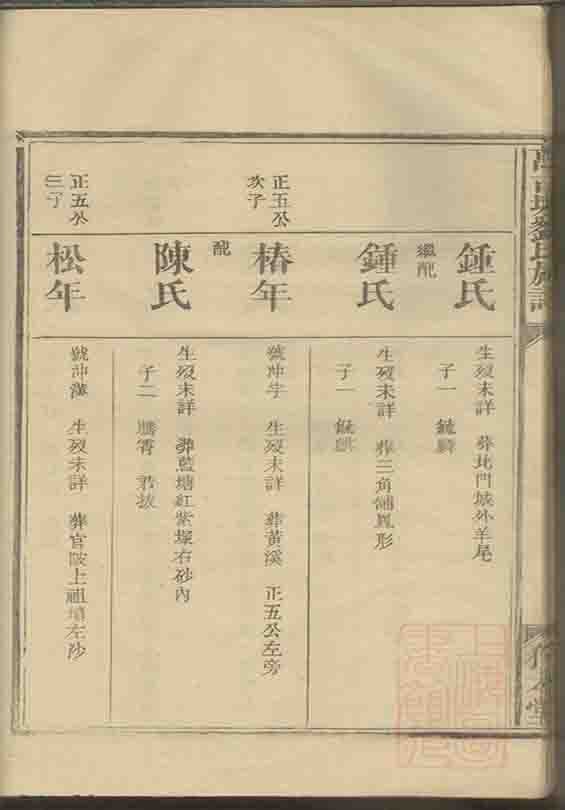 鍾氏
生歿未詳 葬北門城外羊尾
子一
繼配
鍾氏
生歿未詳 葬三角舖鳳形
子一
正五公
次子
椿年
號沖宇 生歿未詳 葬黃溪 正五公左旁
配
陳氏
生歿未詳 葬藍塘紅紫塚右砂內
子二 騰霄 若拔
正五公
三子
松年
號沖漢 生歿未詳 葬官陂上祖墳左沙